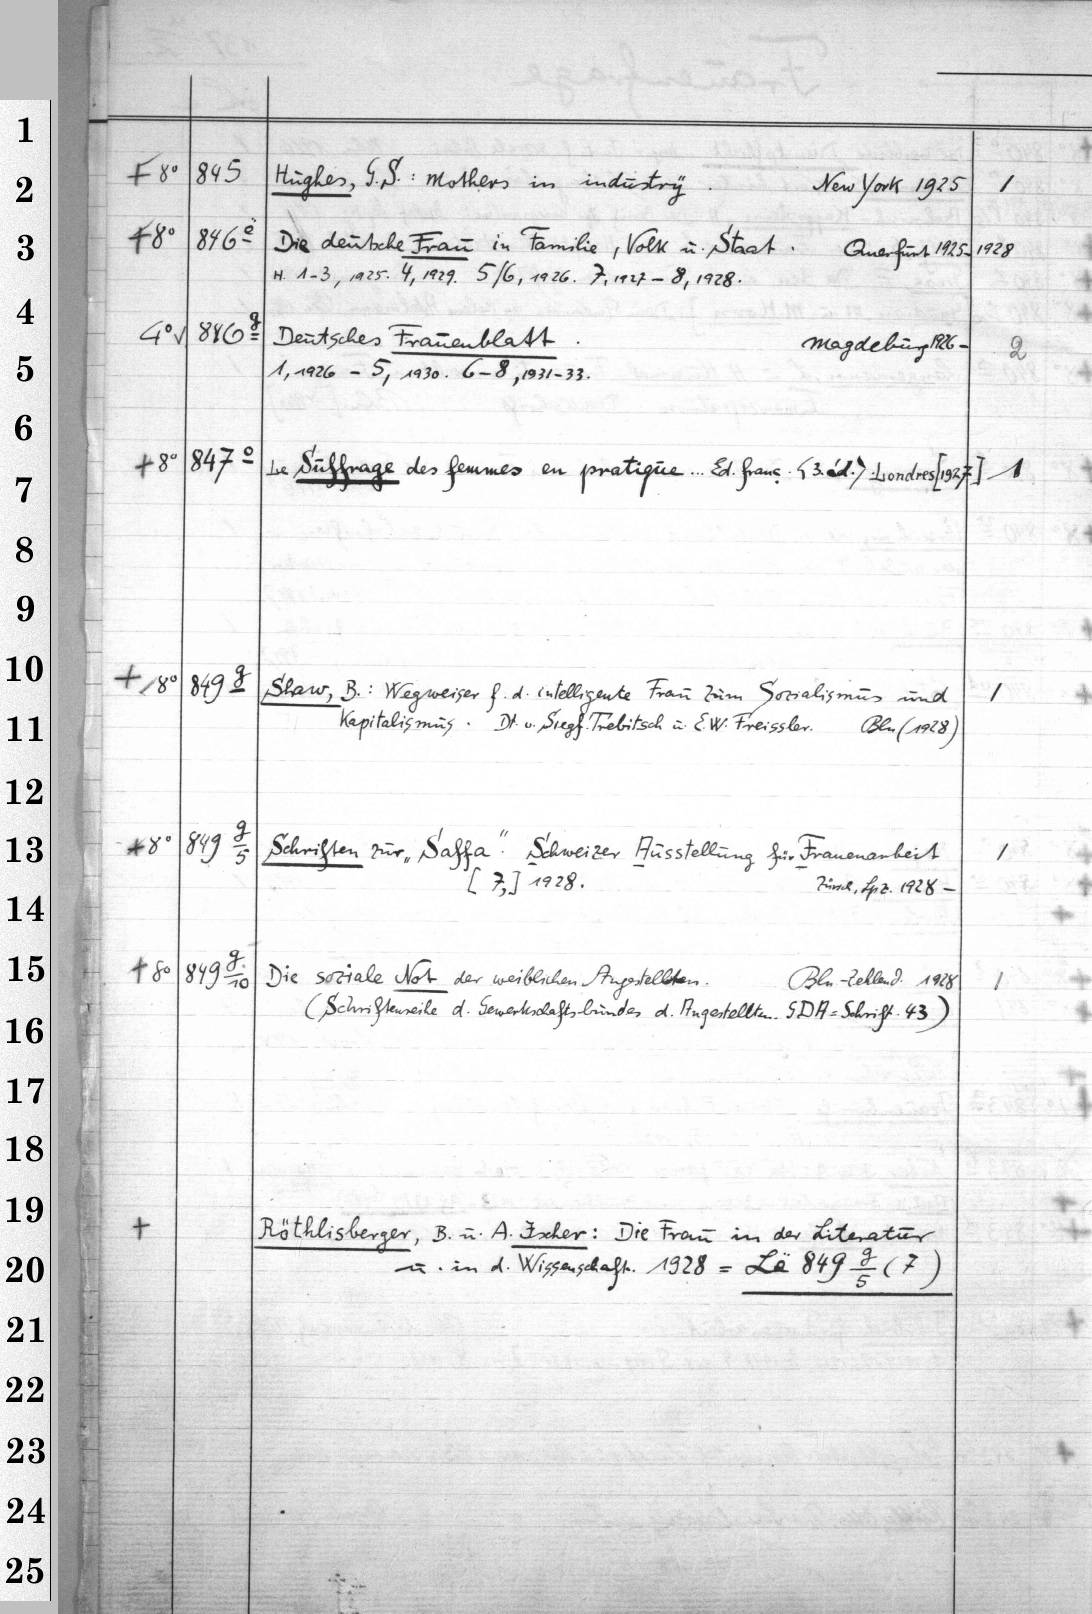 + 8° 845 Hughes, G.S.: Mothers in industry. New York 1925 1
+ 8° 846 e Die deutsche Frau in Familie, Volk u. Staat. Querfurt 1925-1928
H. 1-3, 1925. 4, 1929. 5/6, 1926. 7, 1927 – 8, 1928.
4° √ 846 g Deutsches Frauenblatt. Magdeburg 1926- 2
1, 1926 – 5, 1930. 6–8, 1931-33.
+ 8° 847 o Le Suffrage des femmes en pratique ... Ed. franç. (3. éd.). Londres [1927] 1
+ 8° 849 g Shaw, B.: Wegweiser f. d. intelligente Frau zum Sozialismus und 1
Kapitalismus. Dt. v. Siegf. Trebitsch u. E.W. Freissler. Bln (1928)
+ 8° 849 g/5 Schriften zur „Saffa“. Schweizer Ausstellung für Frauenarbeit 1
[7,] 1928. Zürich, Lpz. 1928 –
+ 8° 849 g/10 Die soziale Not der weiblichen Angestellten. Bln-Zehlend. 1928 1
(Schriftenreihe d. Gewerkschaftsbundes d. Angestellten. GDA = Schrift. 43)
+ Röthlisberger, B. u. A. Ischer: Die Frau in der Literatur
u. in d. Wissenschaft. 1928 = Lë 849 g/5 (7)
1
2
3
4
5
6
7
8
9
10
11
12
13
14
15
16
17
18
19
20
21
22
23
24
25